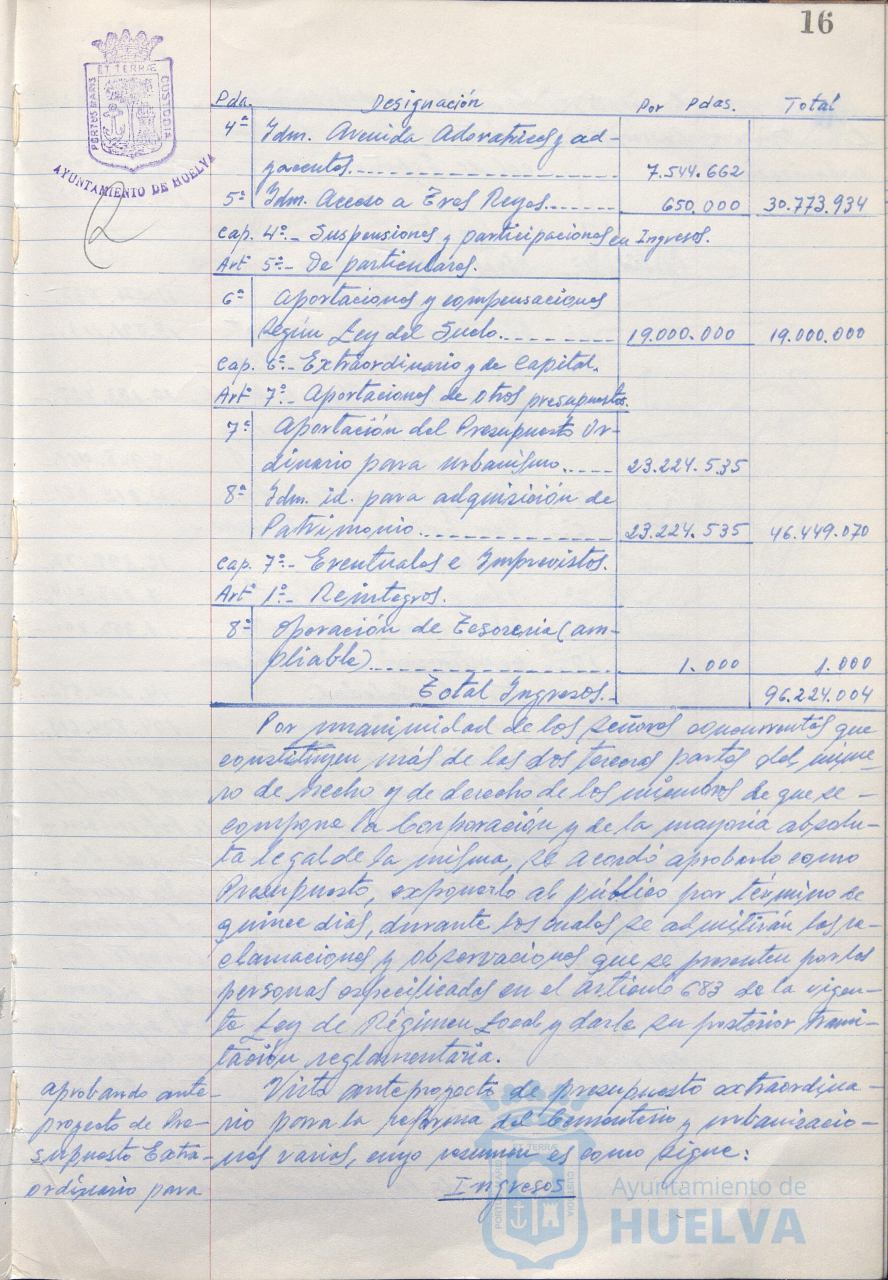 16
ET TERRÆ
PORTUS MARIS
CUSTODIA
AYUNTAMIENTO DE HUELVA
Pda. Designación Por Pdas. Total
4ª Idm. Avenida Adoratrices y ad-
yacentes.------ 7.544.662
5ª Idm. Acceso a Tres Reyes.------ 650.000 30.773.934
Cap. 4º.- Suspensiones y participaciones en Ingresos.
Artº 5º.- De particulares.
6ª Aportaciones y compensaciones
según Ley del Suelo.------ 19.000.000 19.000.000
Cap. 6º.- Extraordinario y de Capital.
Artº 7º.- Aportaciones de otros presupuestos.
7ª Aportación del Presupuesto Or-
dinario para urbanismo.---- 23.224.535
8ª Idm. id. para adquisición de
Patrimonio.------ 23.224.535 46.449.070
Cap. 7º.- Eventuales e Imprevistos.
Artº 1º.- Reintegros.
8ª Operación de Tesorería (am-
pliable)------ 1.000 1.000
Total Ingresos.- 96.224.004
Por unanimidad de los señores concurrentes que
constituyen más de las dos terceras partes del núme-
ro de hecho y de derecho de los miembros de que se -
compone la Corporación y de la mayoría absolu-
ta legal de la misma, se acordó aprobarlo como
Presupuesto, exponerlo al público por término de
quince días, durante los cuales se admitirán las re-
clamaciones y observaciones que se presenten por las
personas especificadas en el artículo 683 de la vigen-
te Ley de Régimen Local y darle su posterior trami-
tación reglamentaria.
aprobando ante-
proyecto de Pre-
supuesto Extra-
ordinario para
Visto anteproyecto de presupuesto extraordina-
rio para la reforma del Cementerio y urbanizacio-
nes varias, cuyo resumen es como sigue:
Ingresos
ET TERRÆ
PORTUS MARIS
CUSTODIA
Ayuntamiento de
HUELVA